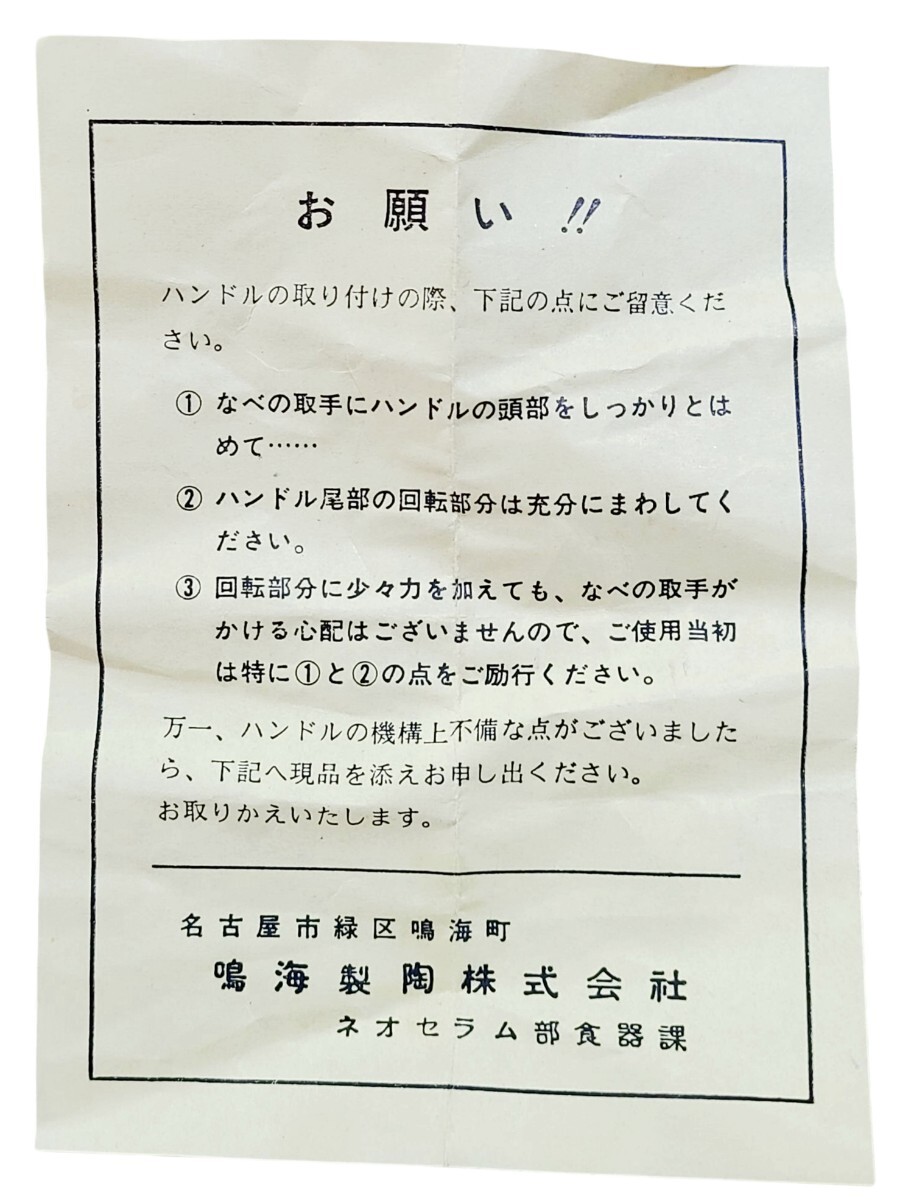 お願い!!
ハンドルの取り付けの際、下記の点にご留意くだ
さい。
① なべの取手にハンドルの頭部をしっかりとは
めて……
② ハンドル尾部の回転部分は充分にまわしてく
ださい。
③ 回転部分に少々力を加えても、なべの取手が
かける心配はございませんので、ご使用当初
は特に①と②の点をご励行ください。
万一、ハンドルの機構上不備な点がございました
ら、下記へ現品を添えお申し出ください。
お取りかえいたします。
名古屋市緑区鳴海町
鳴海製陶株式会社
ネオセラム部食器課